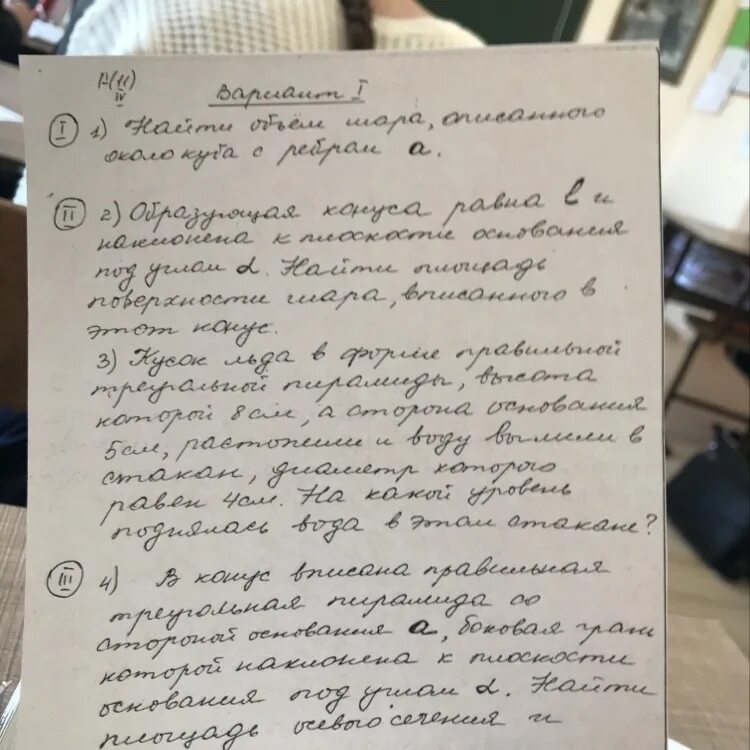 Г-(11)
IV
Вариант I
I 1) Найти объём шара, описанного
около куба с ребрам а.
II 2) Образующая конуса равна l и
наклонена к плоскости основания
под углам α. Найти площадь
поверхности шара, вписанного в
этот конус.
3) Кусок льда в форме правильной
треугольной пирамиды, высота
которой 8 см, а сторона основания
5 см, растопили и воду вылили в
стакан, диаметр которого
равен 4 см. На какой уровень
поднялась вода в этом стакане?
III 4) В конус вписана правильная
треугольная пирамида со
стороной основания а, боковая грань
которой наклонена к плоскости
основания под углам α. Найти
площадь осевого сечения и